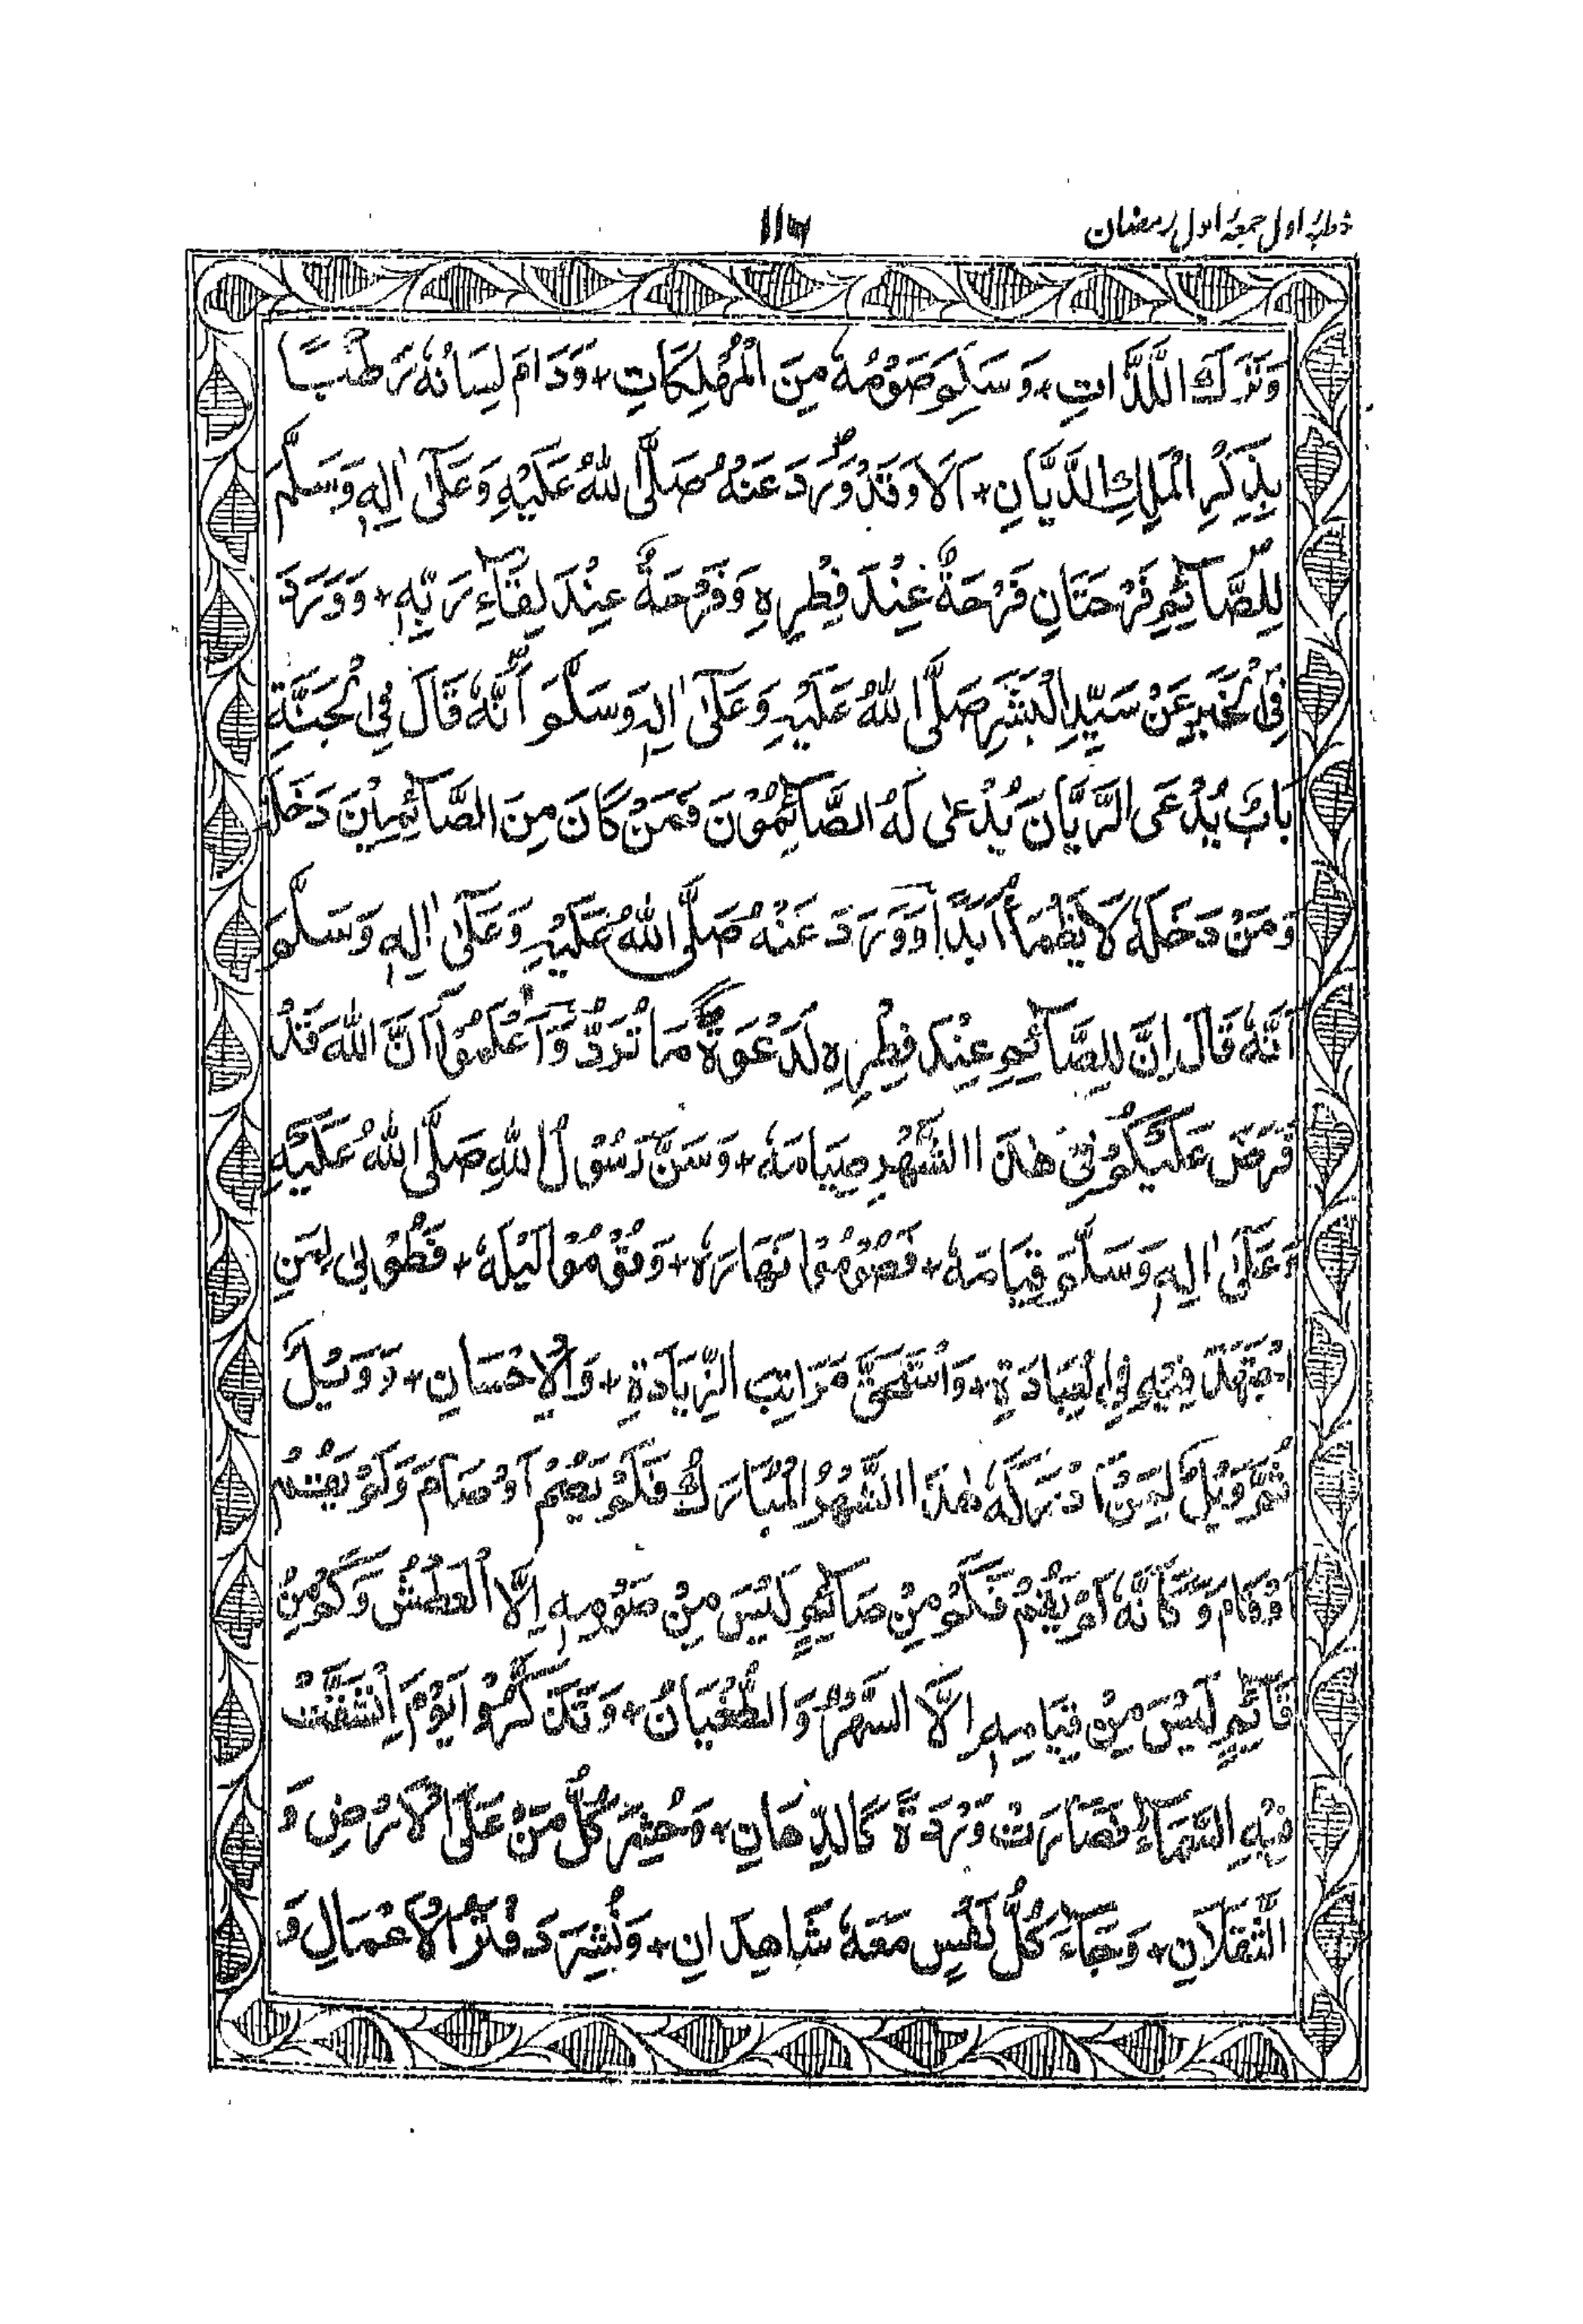 خطبۂ اول جمعۂ اول رمضان
۱۱۷
وَتَرَكَ اللَّذَّاتِ + وَسَلِمَ صَوْمُهٗ مِنَ الْمُهْلِكَاتِ + وَدَامَ لِسَانُهٗ رَطْبًا
بِذِكْرِ الْمَلِكِ الدَّيَّانِ + اَلَا وَقَدْ وَرَدَ عَنْهُ صَلَّى اللهُ عَلَيْهِ وَعَلٰى اٰلِهٖ وَسَلَّمَ
لِلصَّآئِمِ فَرْحَتَانِ فَرْحَةٌ عِنْدَ فِطْرِهٖ وَفَرْحَةٌ عِنْدَ لِقَآءِ رَبِّهٖ + وَوَرَدَ
فِي الْخَبَرِ عَنْ سَيِّدِ الْبَشَرِ صَلَّى اللهُ عَلَيْهِ وَعَلٰى اٰلِهٖ وَسَلَّمَ اَنَّهٗ قَالَ فِي الْجَنَّةِ
بَابٌ يُدْعَى الرَّيَّانَ يُدْعٰى لَهُ الصَّآئِمُوْنَ فَمَنْ كَانَ مِنَ الصَّآئِمِيْنَ دَخَلَهٗ
وَمَنْ دَخَلَهٗ لَا يَظْمَأُ اَبَدًا وَوَرَدَ عَنْهُ صَلَّى اللهُ عَلَيْهِ وَعَلٰى اٰلِهٖ وَسَلَّمَ
اَنَّهٗ قَالَ اِنَّ لِلصَّآئِمِ عِنْدَ فِطْرِهٖ لَدَعْوَةً مَا تُرَدُّ وَاعْلَمُوْا اَنَّ اللهَ قَدْ
فَرَضَ عَلَيْكُمْ فِيْ هٰذَا الشَّهْرِ صِيَامَهٗ + وَسَنَّ رَسُوْلُ اللهِ صَلَّى اللهُ عَلَيْهِ
وَعَلٰى اٰلِهٖ وَسَلَّمَ قِيَامَهٗ + فَصُوْمُوْا نَهَارَهٗ + وَقُوْمُوْا لَيْلَهٗ + فَطُوْبٰى لِمَنِ
اجْتَهَدَ فِيْهِ فِي الْعِبَادَةِ + وَاسْتَحَقَّ مَرَاتِبَ الزِّيَادَةِ + وَالْاِحْسَانِ + وَوَيْلٌ
ثُمَّ وَيْلٌ لِمَنْ اَدْرَكَهٗ هٰذَا الشَّهْرُ الْمُبَارَكُ فَلَمْ يَصُمْ اَوْ صَامَ وَلَمْ يَقُمْ
اَوْ قَامَ وَكَاَنَّهٗ لَمْ يَقُمْ فَكَمْ مِنْ صَآئِمٍ لَيْسَ مِنْ صَوْمِهٖ اِلَّا الْعَطَشُ وَكَمْ مِنْ
قَآئِمٍ لَيْسَ مِنْ قِيَامِهٖ اِلَّا السَّهَرُ وَالطُّغْيَانُ + وَتَذَكَّرُوْا يَوْمَ اِنْشَقَّتْ
فِيْهِ السَّمَآءُ فَصَارَتْ وَرْدَةً كَالدِّهَانِ + وَحُشِرَ كُلُّ مَنْ عَلَى الْاَرْضِ وَ
الثَّقَلَانِ + وَجَآءَ كُلُّ نَفْسٍ مَعَهٗ شَاهِدَانِ + وَنُشِرَ دَفْتَرُ الْاَعْمَالِ وَ